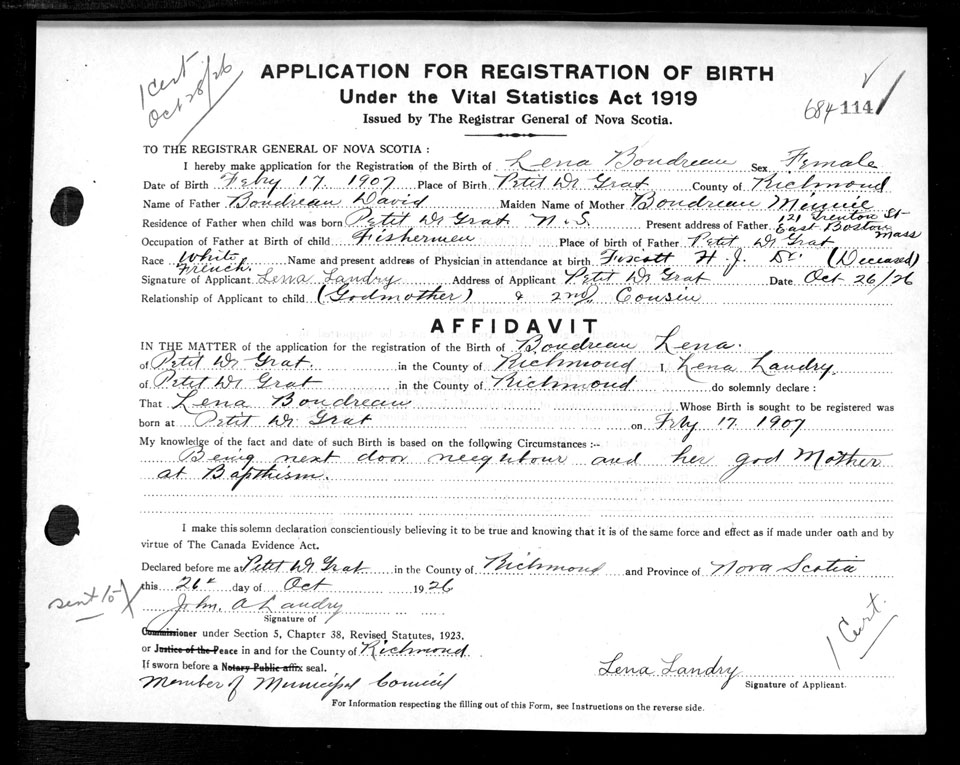 1 Cert
Oct 28/26
APPLICATION FOR REGISTRATION OF BIRTH
Under the Vital Statistics Act 1919
Issued by The Registrar General of Nova Scotia.
684 114
TO THE REGISTRAR GENERAL OF NOVA SCOTIA :
I hereby make application for the Registration of the Birth of Lena Boudreau Sex Female
Date of Birth Feby 17. 1907 Place of Birth Petit Dr Grat County of Richmond
Name of Father Boudreau David Maiden Name of Mother Boudreau Minnie
Residence of Father when child was born Petit Dr Grat N.S. Present address of Father 121 Trenton St
East Boston
Mass
Occupation of Father at Birth of child Fishermen Place of birth of Father Petit Dr Grat
Race White
French. Name and present address of Physician in attendance at birth H. J. Dr. (Deceased)
Signature of Applicant Lena Landry Address of Applicant Petit Dr Grat Date Oct 26/26
Relationship of Applicant to child (Godmother) & 2nd Cousin
AFFIDAVIT
IN THE MATTER of the application for the registration of the Birth of Boudreau Lena.
of Petit Dr Grat. in the County of Richmond I, Lena Landry.
of Petit Dr Grat in the County of Richmond do solemnly declare :
That Lena Boudreau Whose Birth is sought to be registered was
born at Petit Dr Grat on Feby 17. 1907
My knowledge of the fact and date of such Birth is based on the following Circumstances :--
Being next door neeghbour and her god Mother
at Bapthism.
I make this solemn declaration conscientiously believing it to be true and knowing that it is of the same force and effect as if made under oath and by
virtue of The Canada Evidence Act.
Declared before me at Petit Dr Grat in the County of Richmond and Province of Nova Scotia
this 26th day of Oct 1926
sent 10-
John. A Landry
Signature of
Commissioner under Section 5, Chapter 38, Revised Statutes, 1923,
or Justice of the Peace in and for the County of Richmond
If sworn before a Notary Public affix seal.
Member of Municipal Council
1 Cert.
Lena Landry
Signature of Applicant.
For Information respecting the filling out of this Form, see Instructions on the reverse side.